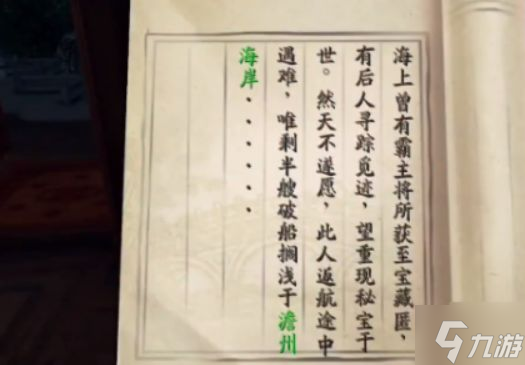 海上曾有霸主将所获至宝藏匿，
有后人寻踪觅迹，望重现秘宝于
世。然天不遂愿，此人返航途中
遇难，唯剩半艘破船搁浅于澹州
海岸······
九游